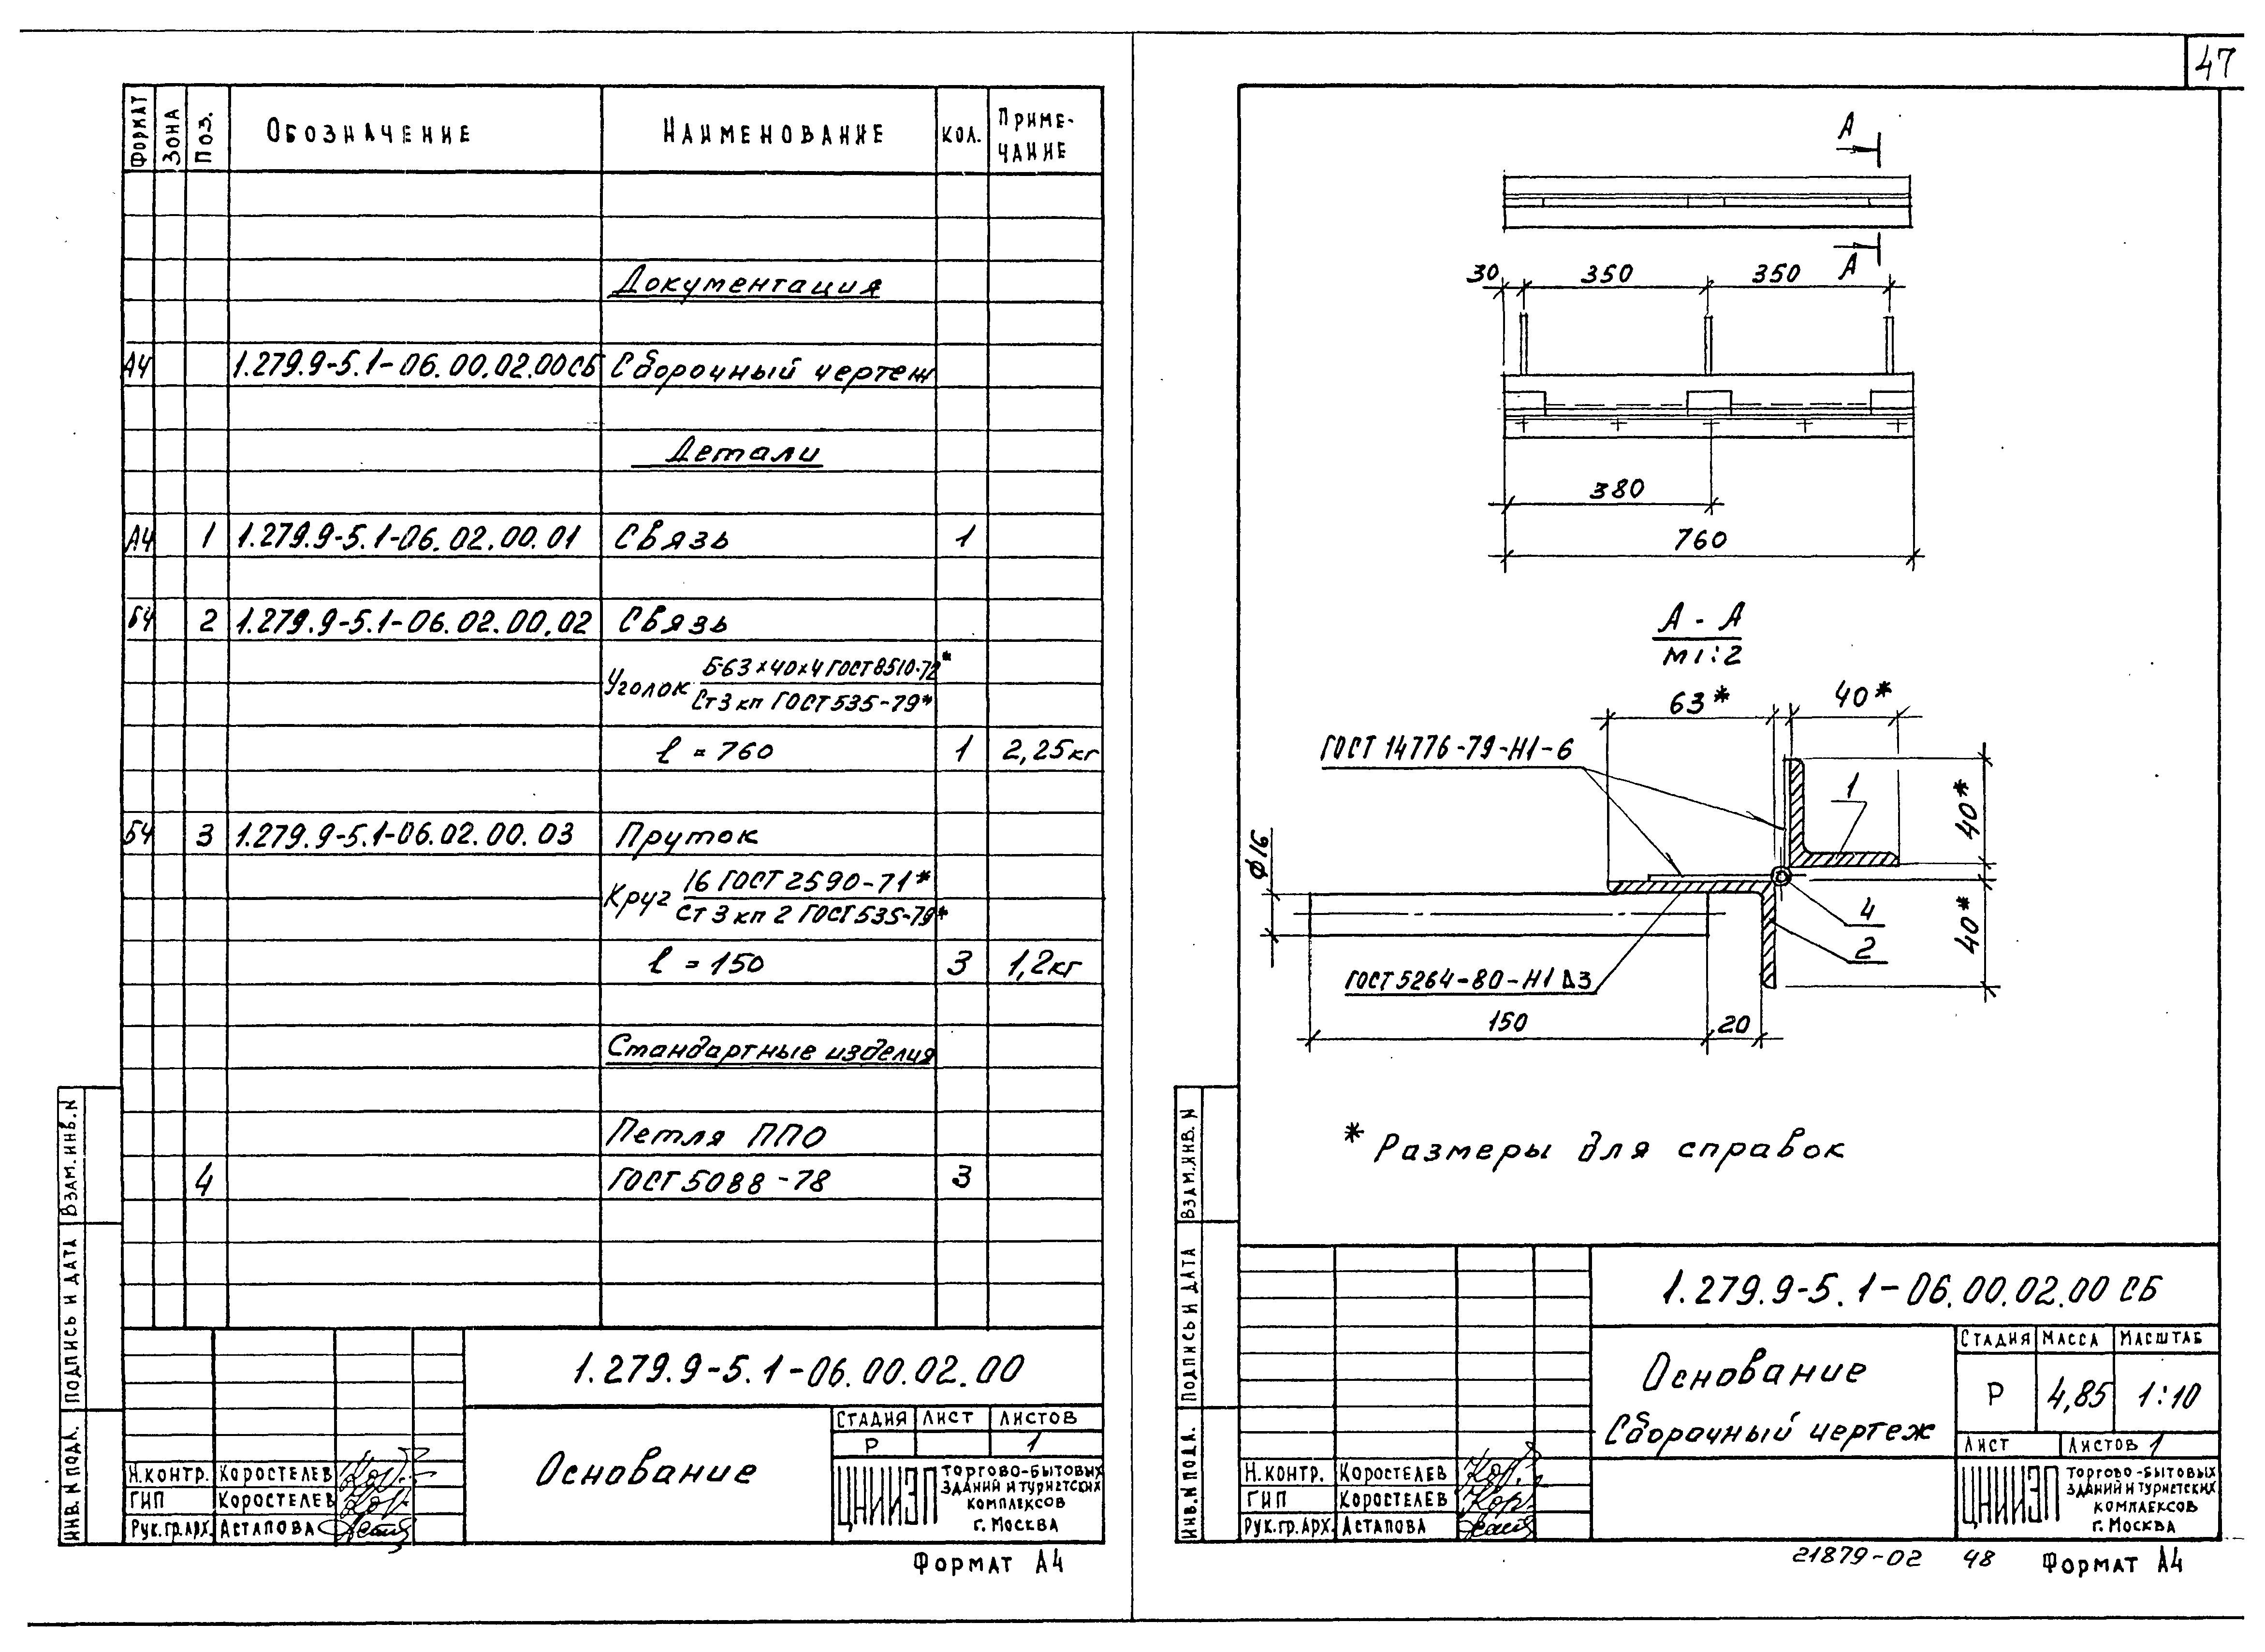 47
ФОРМАТ ЗОНА ПОЗ. ОБОЗНАЧЕНИЕ НАИМЕНОВАНИЕ КОЛ. ПРИМЕ-
ЧАНИЕ
Документация
А4 1.279.9-5.1-06.00.02.00СБ Сборочный чертеж
Детали
А4 1 1.279.9-5.1-06.02.00.01 Связь 1
Б4 2 1.279.9-5.1-06.02.00.02 Связь
Уголок Б-63×40×4 ГОСТ 8510-72*
Ст3кп ГОСТ 535-79*
ℓ = 760 1 2,25кг
Б4 3 1.279.9-5.1-06.02.00.03 Пруток
Круг 16 ГОСТ 2590-71*
Ст3кп 2 ГОСТ 535-79*
ℓ = 150 3 1,2кг
Стандартные изделия
Петля ППО
4 ГОСТ 5088-78 3
ВЗАМ.ИНВ.N
ПОДПИСЬ И ДАТА
ИНВ.N ПОДЛ.
1.279.9-5.1-06.00.02.00
Основание
СТАДИЯ ЛИСТ ЛИСТОВ
Р 1
Н.КОНТР. КОРОСТЕЛЕВ
ГИП КОРОСТЕЛЕВ
РУК.ГР.АРХ. АСТАПОВА
ЦНИИЭП
ТОРГОВО-БЫТОВЫХ
ЗДАНИЙ И ТУРИСТСКИХ
КОМПЛЕКСОВ
Г. МОСКВА
ФОРМАТ А4
А
А
30 350 350
380
760
А - А
М 1:2
63* 40*
ГОСТ 14776-79-Н1-6
1
40*
ϕ16
4
2
40*
ГОСТ 5264-80-Н1 Δ3
150 20
* Размеры для справок
ВЗАМ.ИНВ.N
ПОДПИСЬ И ДАТА
ИНВ.N ПОДЛ.
1.279.9-5.1-06.00.02.00 СБ
Основание
Сборочный чертеж
СТАДИЯ МАССА МАСШТАБ
Р 4,85 1:10
ЛИСТ ЛИСТОВ 1
Н.КОНТР. КОРОСТЕЛЕВ
ГИП КОРОСТЕЛЕВ
РУК.ГР.АРХ. АСТАПОВА
ЦНИИЭП
ТОРГОВО-БЫТОВЫХ
ЗДАНИЙ И ТУРИСТСКИХ
КОМПЛЕКСОВ
Г. МОСКВА
21879-02 48 ФОРМАТ А4